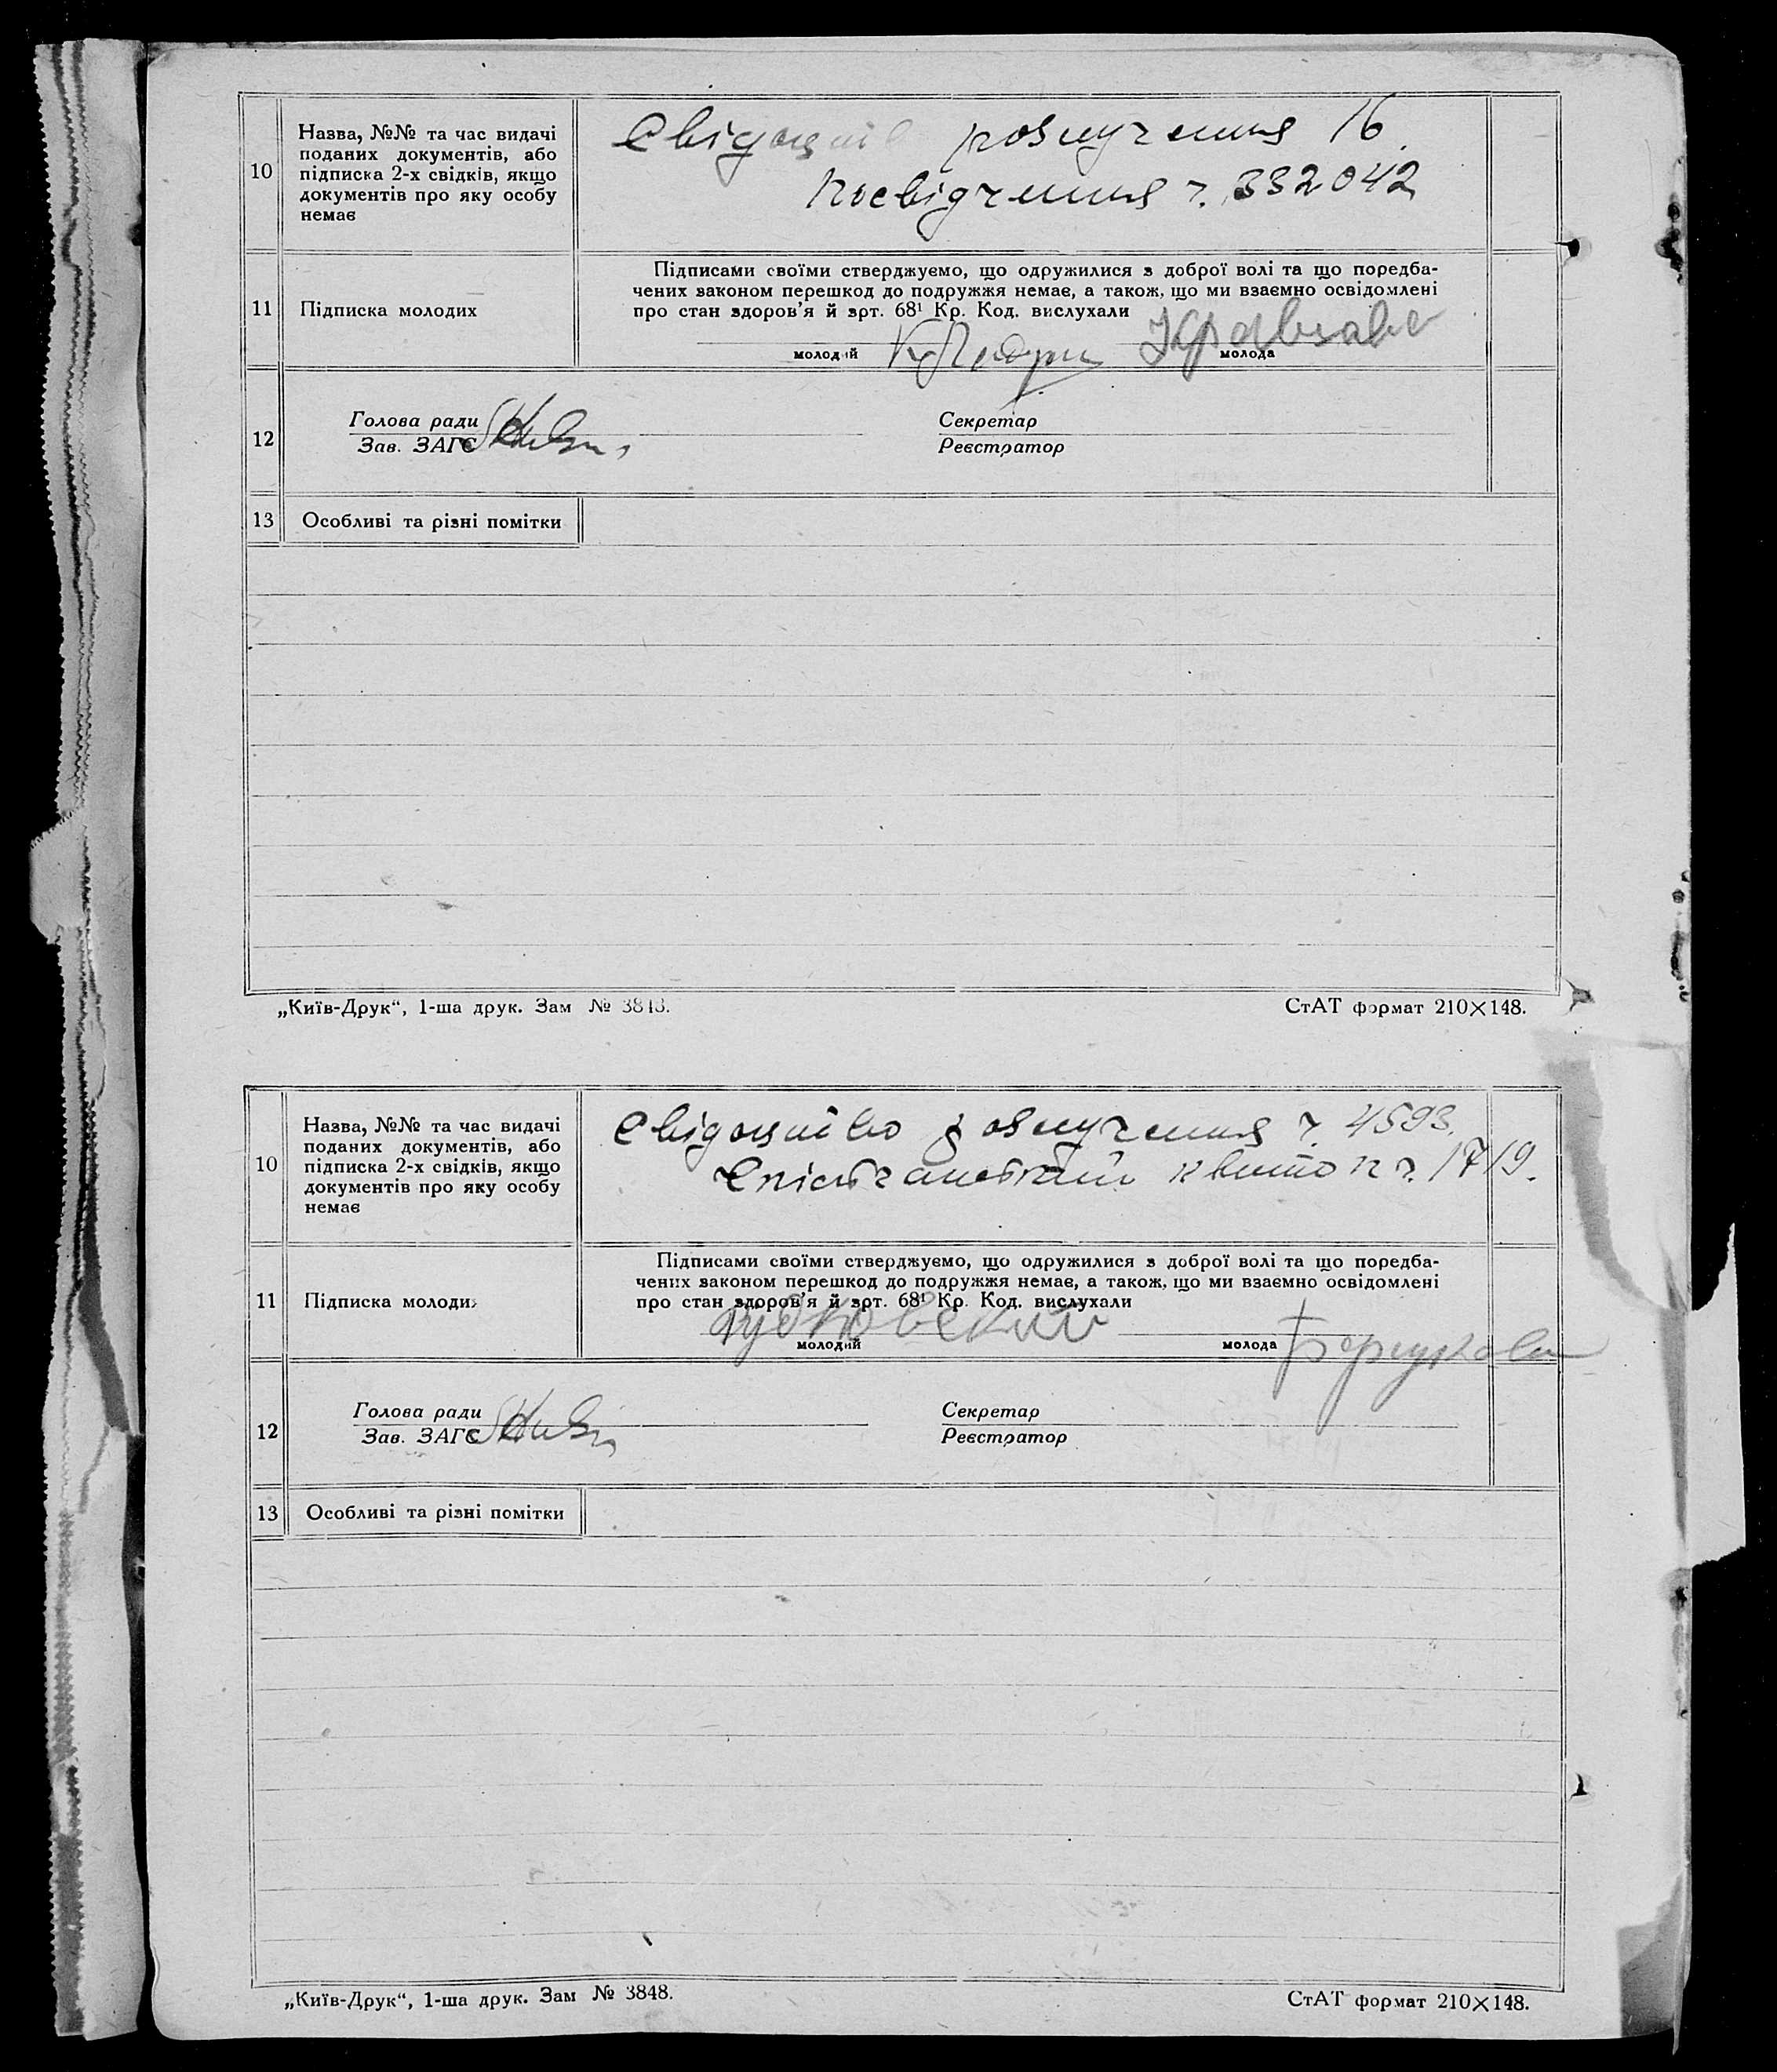 10
Назва, №№ та час видачі
поданих документів, або
підписка 2-х свідків, якщо
документів про яку особу
немає
розлучення 16.
Посвідчення ч. 332042
11
Підписка молодих
Підписами своїми стверджуємо, що одружилися з доброї волі та що поредба-
чених законом перешкод до подружжя немає, а також, що ми взаємно освідомлені
про стан здоров'я й арт. 68¹ Кр. Код. вислухали
молодий
молода
12
Голова ради
Зав. ЗАГС
Секретар
Реєстратор
13
Особливі та різні помітки
„Київ-Друк“, 1-ша друк. Зам №
СтАТ формат 210×148.
10
Назва, №№ та час видачі
поданих документів, або
підписка 2-х свідків, якщо
документів про яку особу
немає
Свідоцтво розлучення ч. 4593.
квиток ч. 1719.
11
Підписка молодих
Підписами своїми стверджуємо, що одружилися з доброї волі та що поредба-
чених законом перешкод до подружжя немає, а також, що ми взаємно освідомлені
про стан здоров'я й арт. 68¹ Кр. Код. вислухали
молодий
молода
12
Голова ради
Зав. ЗАГС
Секретар
Реєстратор
13
Особливі та різні помітки
„Київ-Друк“, 1-ша друк. Зам № 3848.
СтАТ формат 210×148.